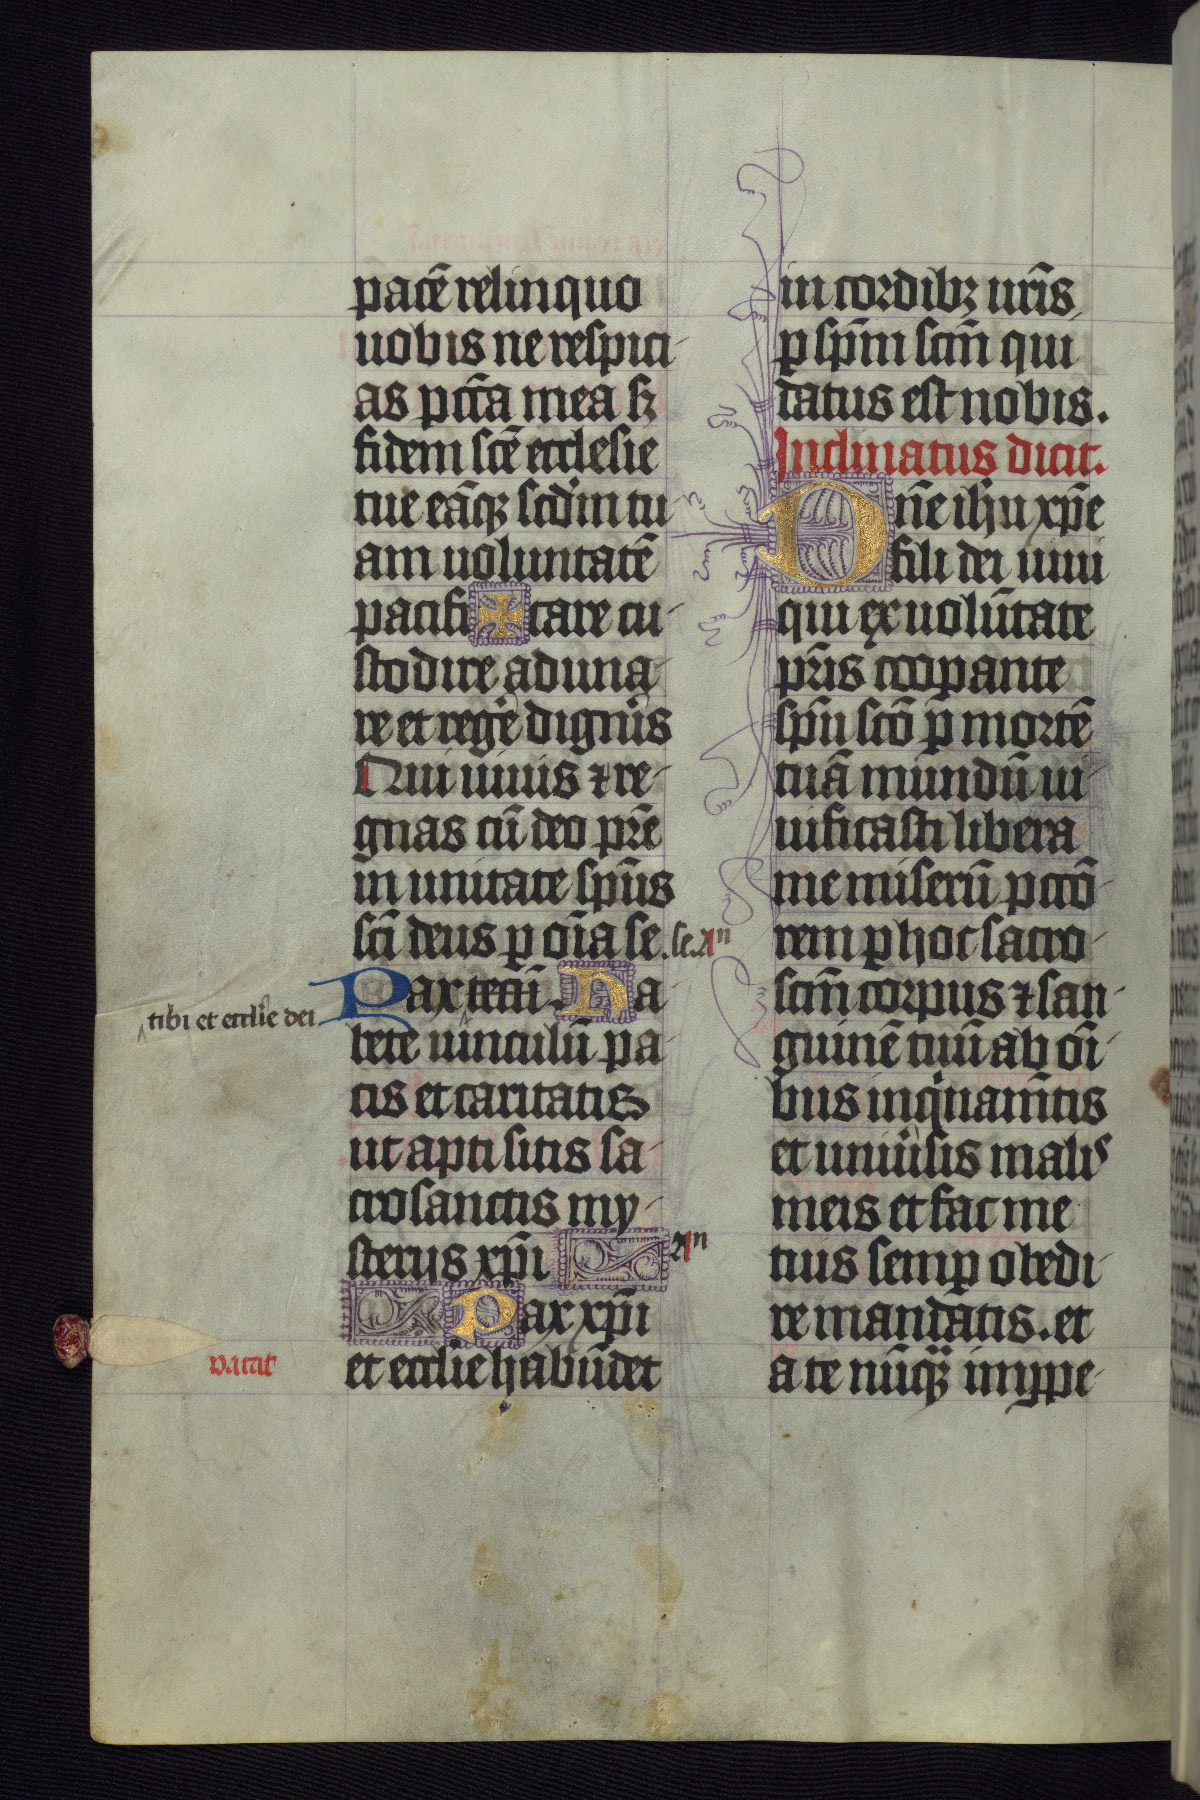 pacē relinquo
uobis ne respici-
as pctā mea sꝫ
fidem scē ecclesie
tue eāqꝫ scdm tu-
am uoluntatē
pacifi✠care cu-
stodire aduna-
re et rege digneris
Qui uiuis ⁊ re-
gnas cū deo pr̄e
in unitate sp̄us
scī deus p om̄ia se. se. Am
Pax tecū. Ha-
tibi et eccl̄ie dei
bete uinculū pa-
cis et caritatis
ut apti sitis sa-
crosanctis my-
sterijs xp̄i Am
Pax xp̄i
uacat
et eccl̄ie habūdet
in cordibꝫ ur̄is
p sp̄m scm̄ qui
datus est nobis.
Inclinatus dicit.
Dn̄e ih̄u xp̄e
fili dei uiui
qui ex uolūtate
pr̄is coopante
sp̄u scō p mortē
tuā mundū ui-
uificasti libera
me miserū pctō-
rem p hoc sacro-
scm̄ corpus ⁊ san-
guinē tuū ab om̄i-
bus iniquitatis
et uniuersis malis
meis et fac me
tuis semp obedi-
re mandatis. et
a te nūqꝫ in ppe-